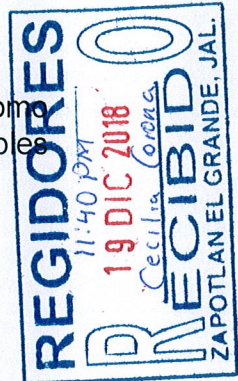 omo
bles
REGIDORES
11:40 PM
19 DIC 2018
Cecilia Corona
RECIBIDO
ZAPOTLAN EL GRANDE, JAL.